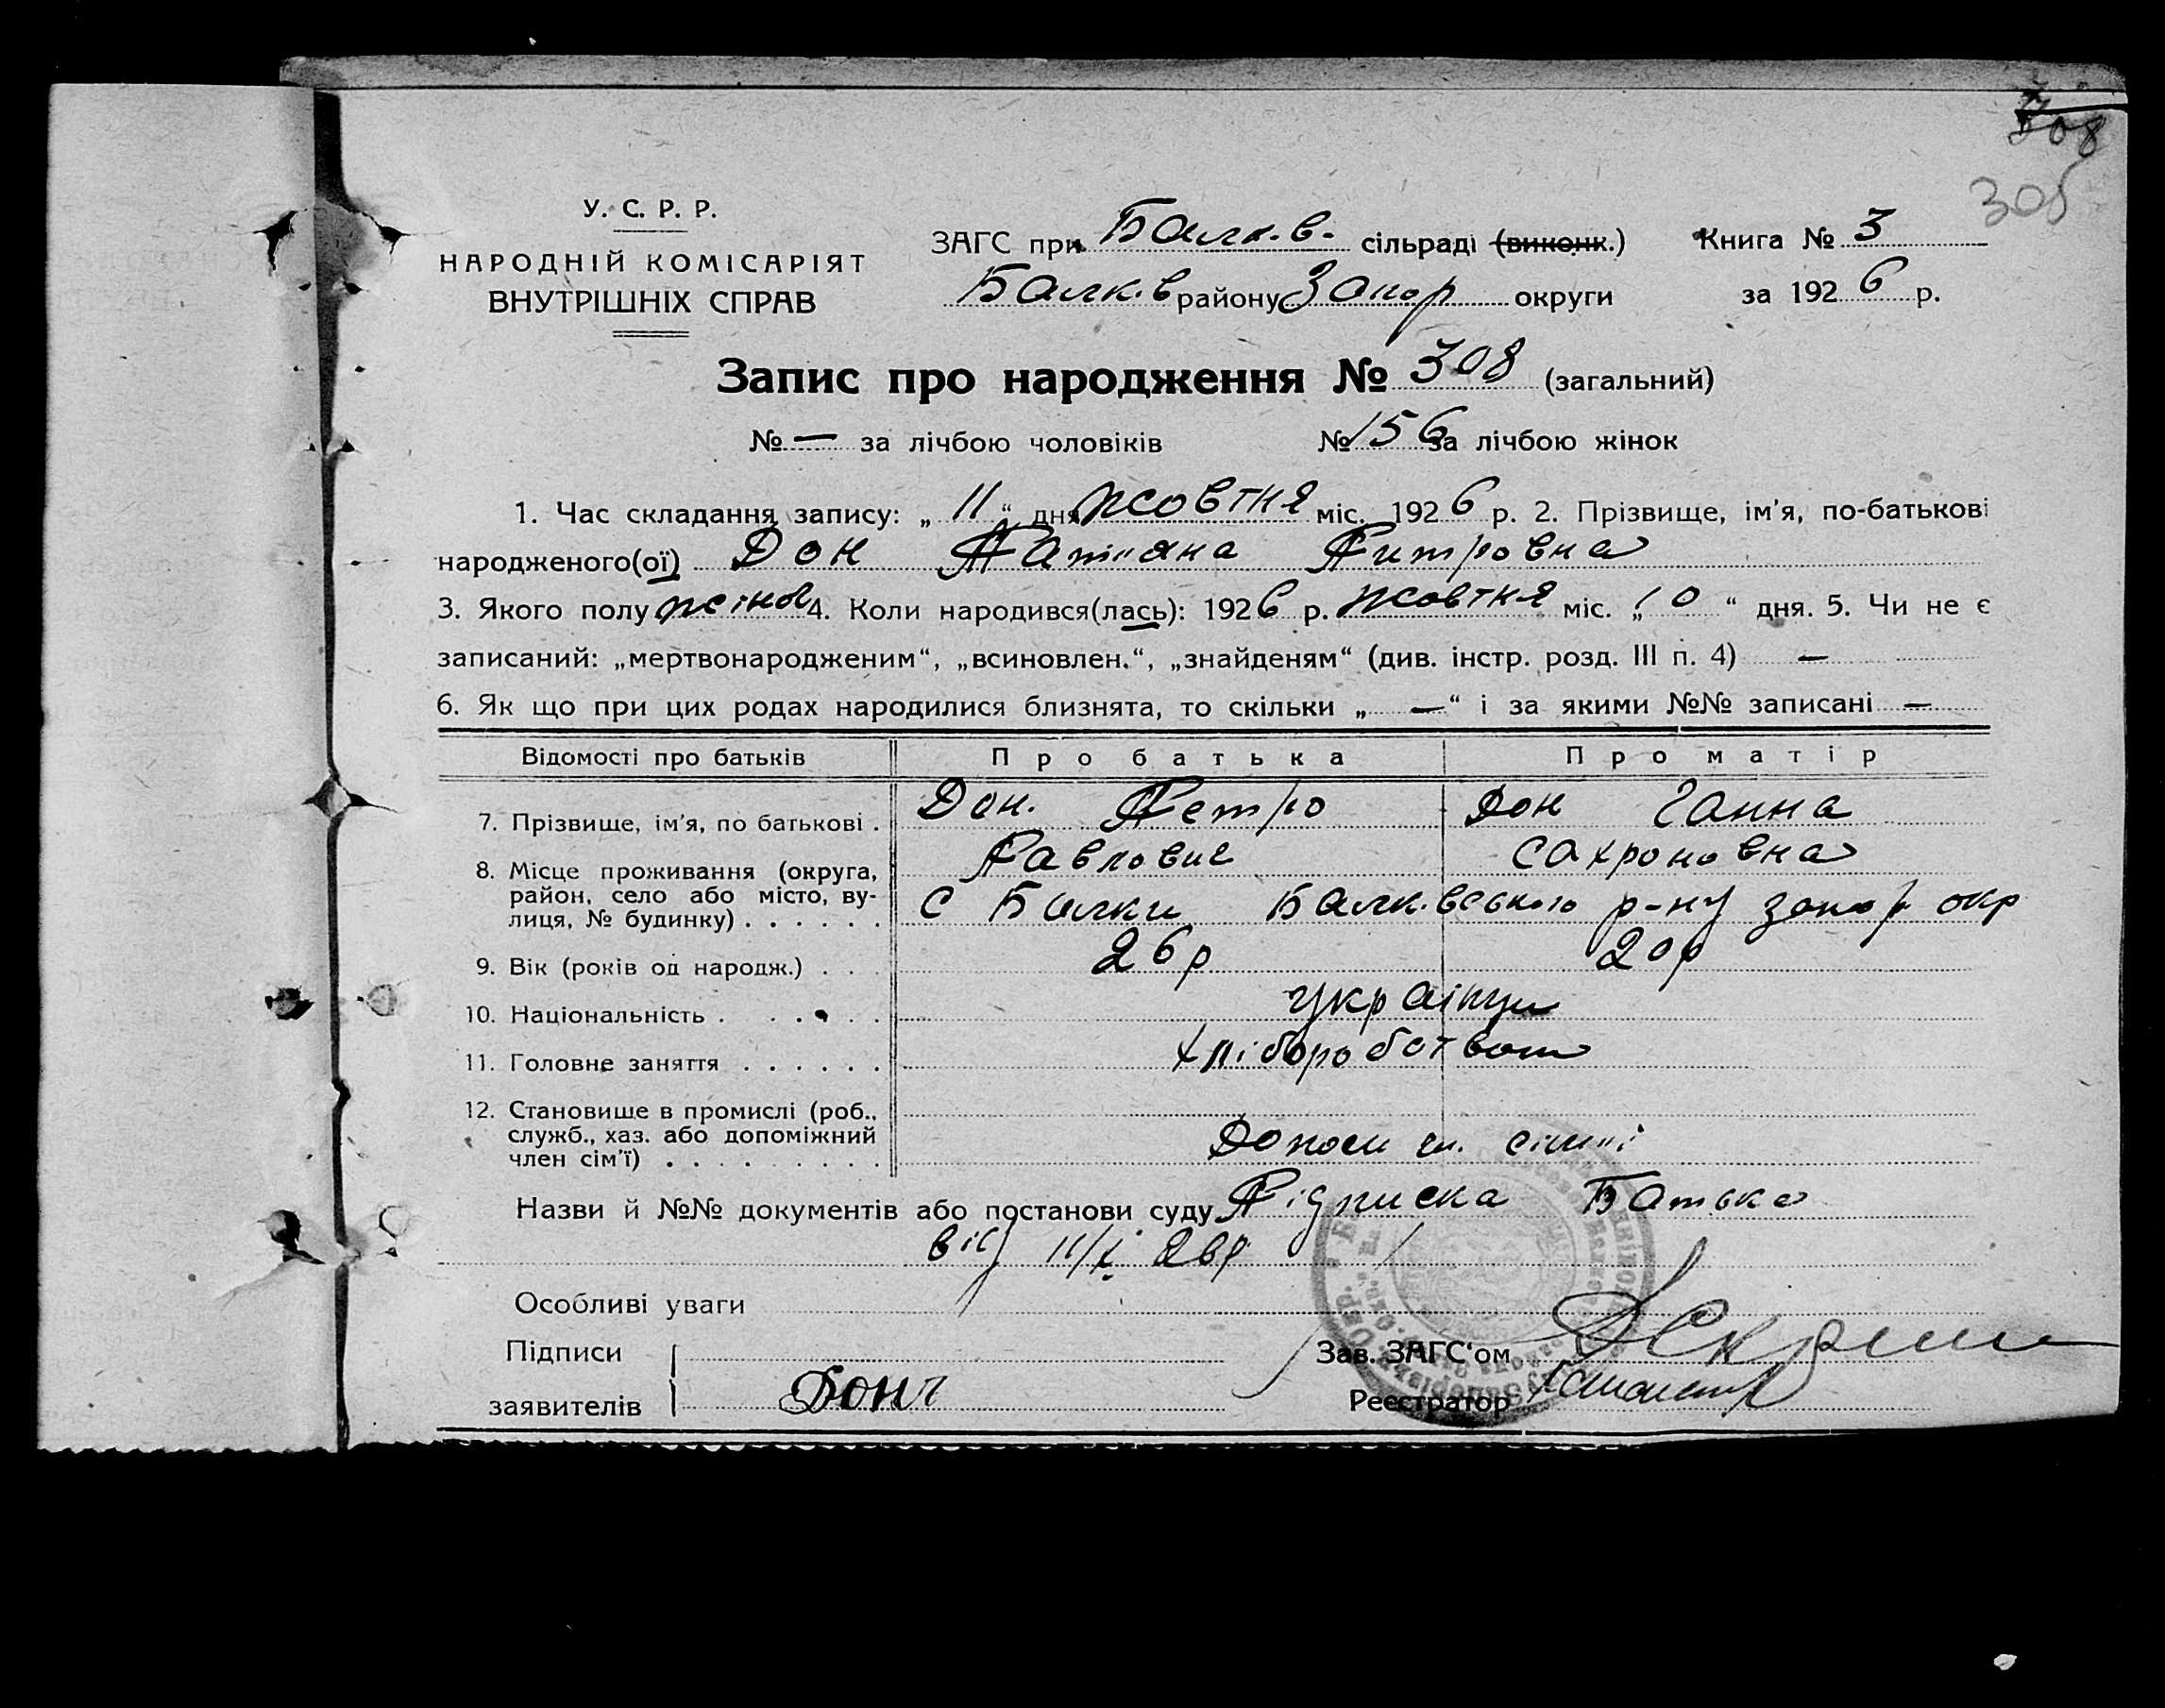 308
305
У. С. Р. Р.
НАРОДНІЙ КОМІСАРІЯТ
ВНУТРІШНІХ СПРАВ
ЗАГС при Балк.в. сільраді (виконк.) Книга № 3
Балк.в району Запор округи за 1926 р.
Запис про народження № 308 (загальний)
№ — за лічбою чоловіків № 156 за лічбою жінок
1. Час складання запису: „ 11 “ дня жовтня міс. 1926 р. 2. Прізвище, ім'я, по-батькові
народженого(ої) Дон Татіяна Питровна
3. Якого полу 4. Коли народився(лась): 1926 р. жовтня міс. „ 10 “ дня. 5. Чи не є
записаний: „мертвонародженим“, „всиновлен.“, „знайденям“ (див. інстр. розд. III п. 4) —
6. Як що при цих родах народилися близнята, то скільки „ — “ і за якими №№ записані —
Відомості про батьків Про батька Про матір
7. Прізвище, ім'я, по батькові . Дон. Петро Дон Ганна
Павлович Сахроновна
8. Місце проживання (округа,
район, село або місто, ву-
лиця, № будинку) . . . . . . с Балки Балк.вського р-ну запор окр
9. Вік (років од народж.) . . . 26р 20р
10. Національність . . . . . . українци
11. Головне заняття . . . . . . хліборобством
12. Становище в промислі (роб.,
служб., хаз. або допоміжний
член сім'ї) . . . . . . . . . чл. сімиі
Назви й №№ документів або постанови суду Підписка Батька
від 11/X 26р
Особливі уваги
Підписи Зав. ЗАГС'ом
заявителів Дон Реєстратор